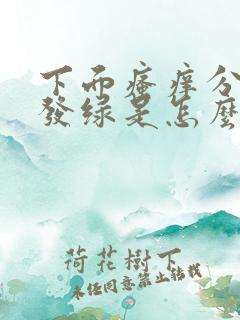 下面瘙痒分
發绿是怎麼
荷花樹下
未经同意禁止转载